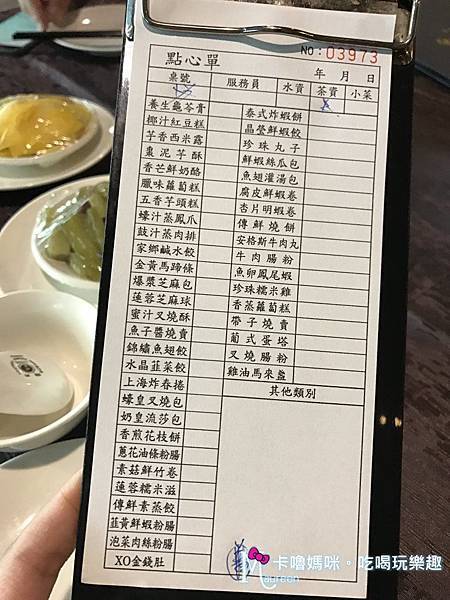 NO: 03973
點心單
年 月 日
桌號 服務員 水資 茶資 小菜
養生龜苓膏
椰汁紅豆糕
芋香西米露
棗泥芋酥
香芒鮮奶酪
臘味蘿蔔糕
五香芋頭糕
蠔汁蒸鳳爪
鼓汁蒸肉排
家鄉鹹水餃
金黃馬蹄條
爆漿芝麻包
蓮蓉芝麻球
蜜汁叉燒酥
魚子醬燒賣
錦繡魚翅餃
水晶韮菜餃
上海炸春捲
蠔皇叉燒包
奶皇流莎包
香煎花枝餅
蔥花油條粉腸
素菇鮮竹卷
蓮蓉糯米滋
傳鮮素蒸餃
韮黃鮮蝦粉腸
泡菜肉絲粉腸
XO金錢肚
泰式炸蝦餅
晶瑩鮮蝦餃
珍珠丸子
鮮蝦絲瓜包
魚翅灌湯包
腐皮鮮蝦卷
杏片明蝦卷
傳鮮燒餅
安格斯牛肉丸
牛肉腸粉
魚卵鳳尾蝦
珍珠糯米雞
香蒸蘿蔔糕
帶子燒賣
葡式蛋塔
叉燒腸粉
雞油馬來盞
其他類別
卡嚕媽咪。吃喝玩樂趣
Maureen